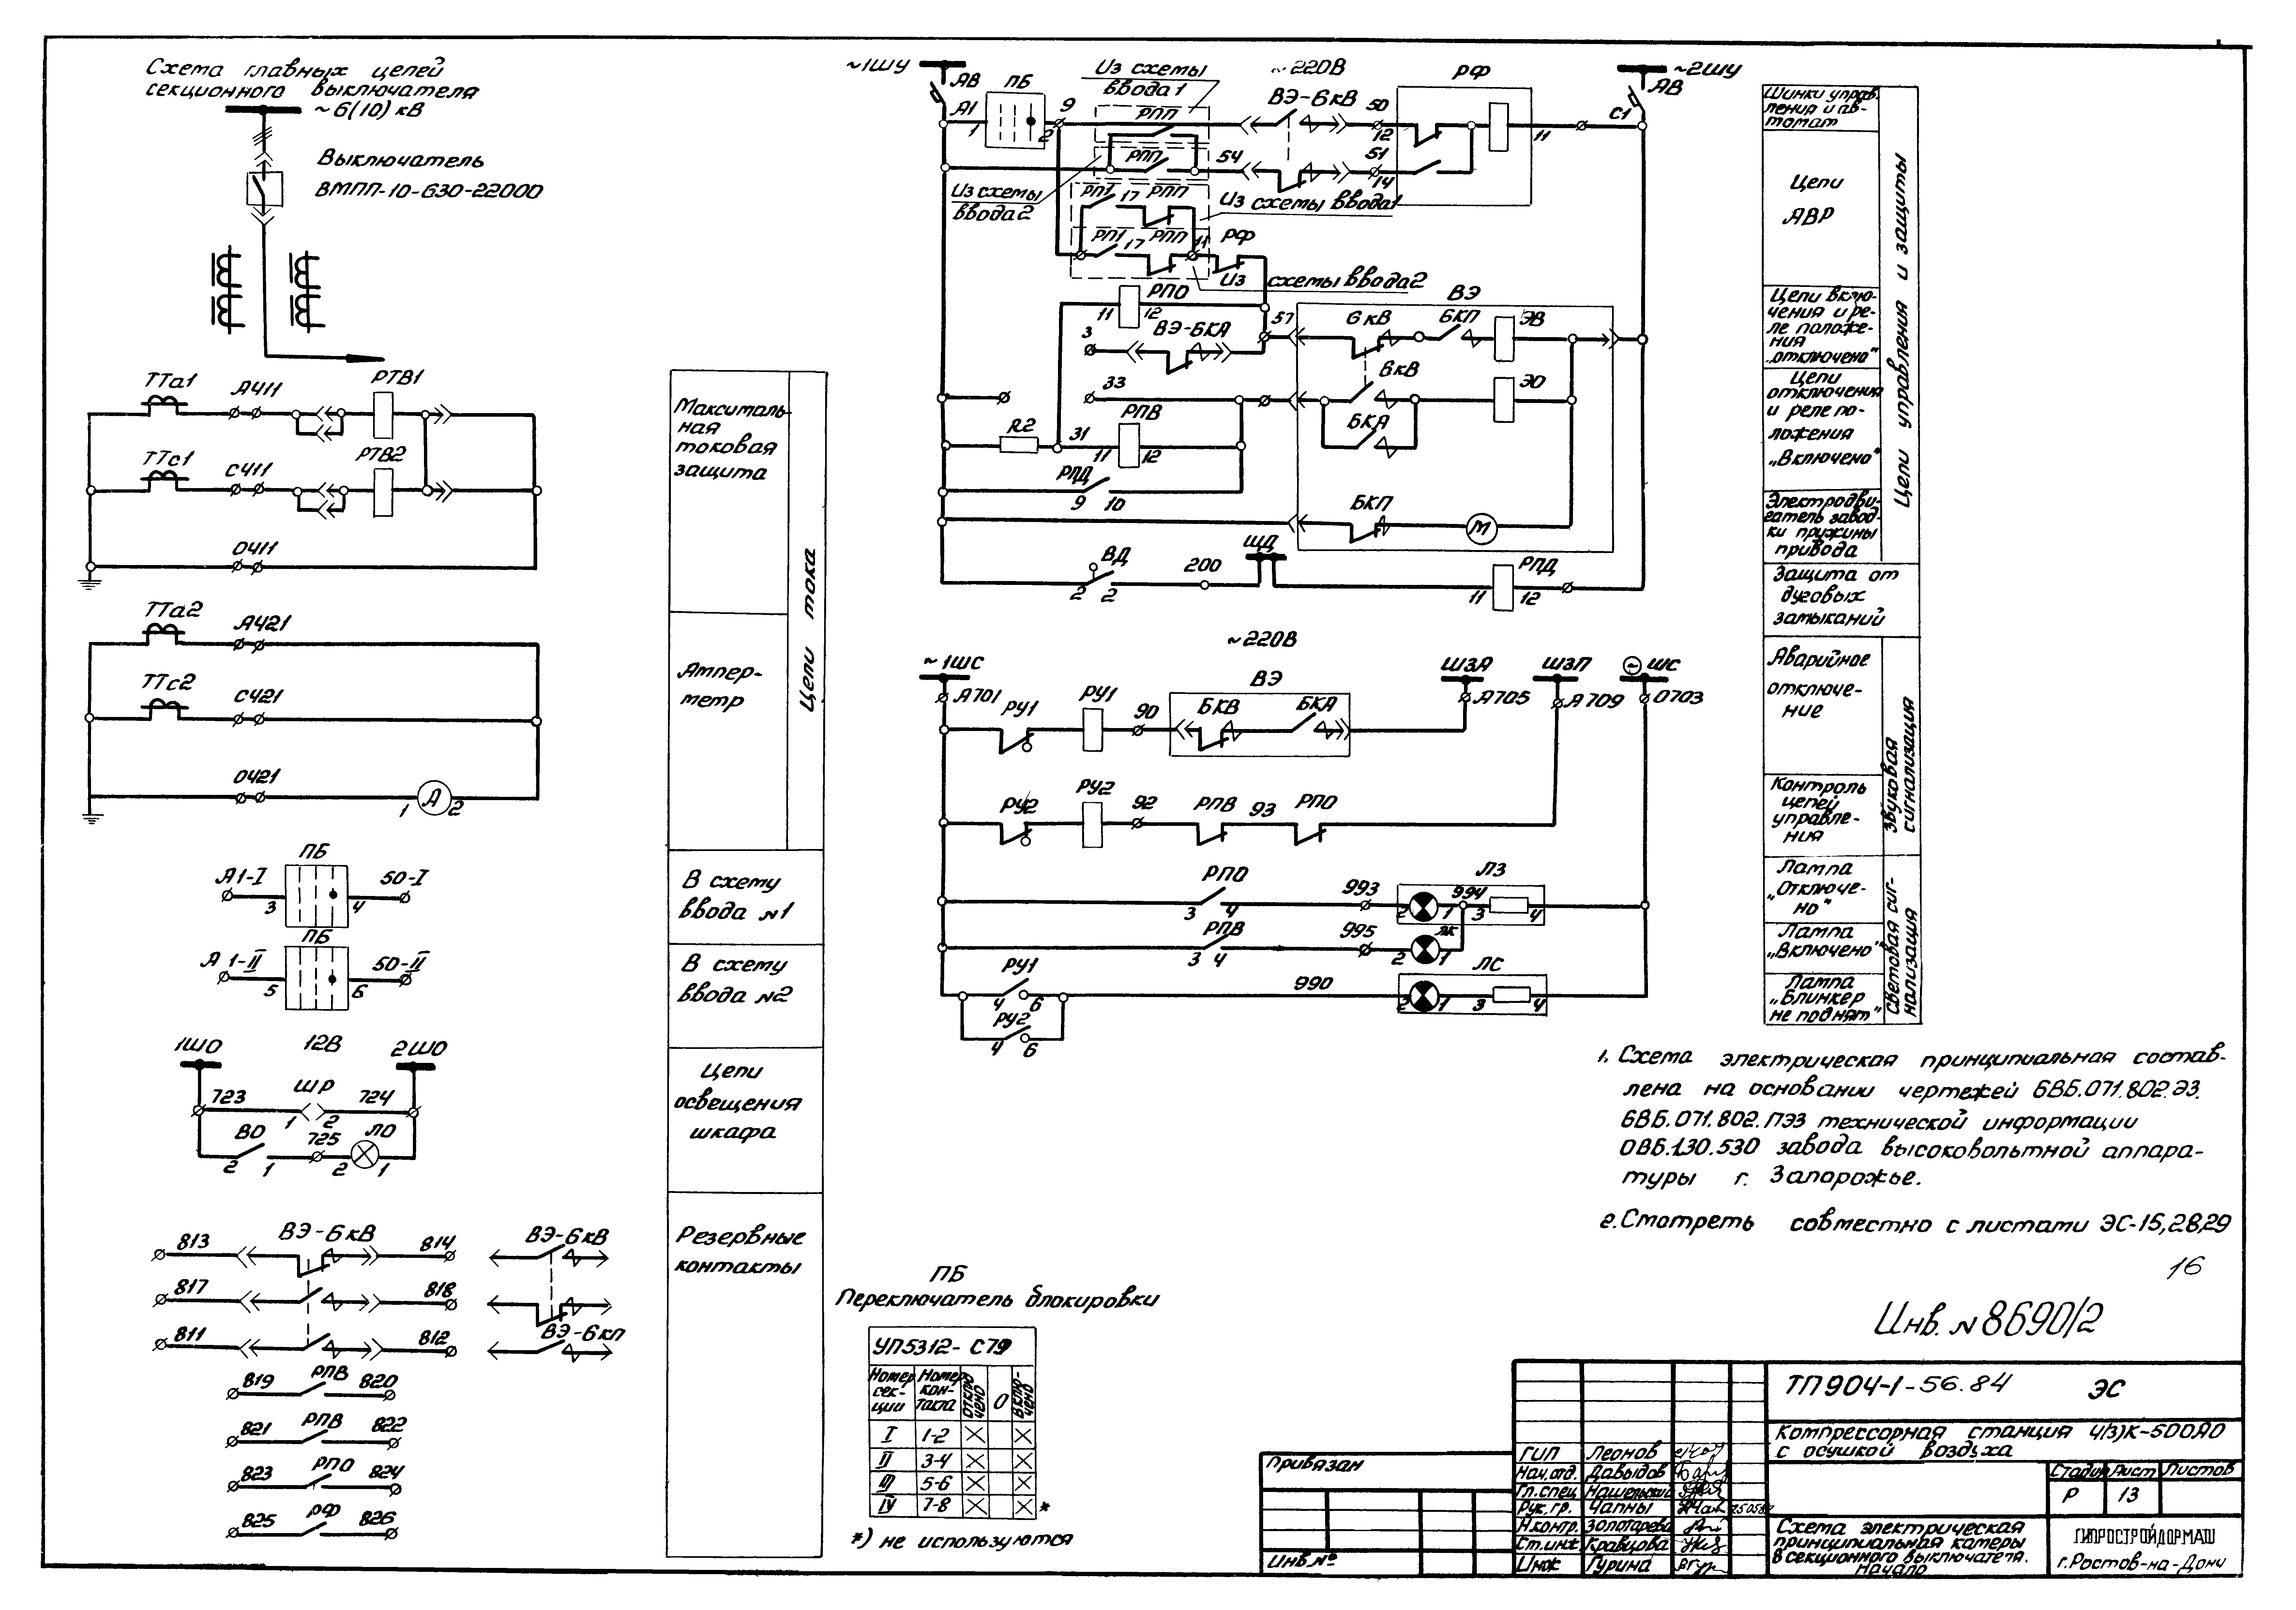 Схема главных цепей
секционного выключателя
~6(10) кВ
Выключатель
ВМПП-10-630-22000
ТТа1
А411
РТВ1
ТТс1
С411
РТВ2
О411
ТТа2
А421
ТТс2
С421
О421
1
А
2
ПБ
А1-I
3
4
50-I
ПБ
А1-II
5
6
50-II
1ШО
12В
2ШО
723
ШР
724
1
2
ВО
725
ЛО
2
1
2
1
813
ВЭ-БкВ
814
817
818
811
812
ВЭ-БкВ
ВЭ-Бкп
819
РПВ
820
821
РПВ
822
823
РПО
824
825
РФ
826
Максималь-
ная
токовая
защита
Ампер-
метр
Цепи тока
В схему
ввода №1
В схему
ввода №2
Цепи
освещения
шкафа
Резервные
контакты
~1ШУ
АВ
ПБ
Из схемы
ввода 1
~220В
РФ
~2ШУ
АВ
А1
1
2
9
РПП
ВЭ-БкВ
50
12
11
С1
РПП
54
51
14
Из схемы
ввода 2
РП1
17
РПП
Из схемы ввода 1
РП1
17
РПП
11
РФ
Из схемы ввода 2
РПО
11
12
3
ВЭ-БКА
57
ВЭ
БкВ
БКП
ЭВ
33
БкВ
ЭО
R2
31
РПВ
11
12
БКА
РПД
9
10
БКП
М
ВД
2
2
200
ШД
РПД
11
12
~220В
~1ШС
ШЗА
ШЗП
~ШС
А701
А705
А709
О703
РУ1
РУ1
90
ВЭ
БКВ
БКА
РУ2
РУ2
92
РПВ
93
РПО
РПО
3
4
993
ЛЗ
2
1
994
3
4
РПВ
3
4
995
ЛК
2
1
РУ1
4
6
990
ЛС
2
1
3
4
РУ2
4
6
Шинки управ-
ления и ав-
томат
Цепи
АВР
Цепи вклю-
чения и ре-
ле положе-
ния
„отключено"
Цепи
отключения
и реле по-
ложения
„Включено"
Электродви-
гатель завод-
ки пружины
привода
Цепи управления и защиты
Защита от
дуговых
замыканий
Аварийное
отключе-
ние
Контроль
цепей
управле-
ния
Звуковая
сигнализация
Лампа
„Отключе-
но"
Лампа
„Включено"
Лампа
„Блинкер
не поднят"
Световая сиг-
нализация
1. Схема электрическая принципиальная состав-
лена на основании чертежей 6ВБ.071.802.ЭЗ.
6ВБ.071.802.ПЭЗ технической информации
ОВБ.130.530 завода высоковольтной аппара-
туры г. Запорожье.
2. Смотреть совместно с листами ЭС-15,28,29
16
Инв. №8690/2
ПБ
Переключатель блокировки
УП5312-С79
Номер сек-ции
Номер кон-такта
Отклю-чено
О
Вклю-чено
I 1-2 × ×
II 3-4 × ×
III 5-6 × ×
IV 7-8 × × *
*) не используются
Привязан
Инв.№
ГИП Леонов
Нач.отд. Давыдов
Гл.спец Нашельский
Рук.гр. Чапны
Н.контр. Золотарева
Ст.инж Кравцова
Инж Гурина
ТП904-1-56.84 ЭС
Компрессорная станция 4(3)К-500АО
с осушкой воздуха
Стадия Лист Листов
Р 13
Схема электрическая
принципиальная камеры
В секционного выключателя.
Начало
ГИПРОСТРОЙДОРМАШ
г.Ростов-на-Дону